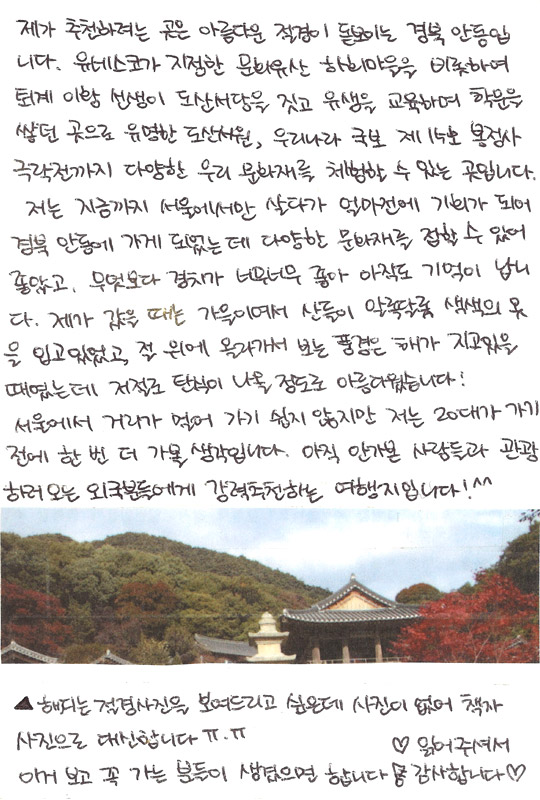 제가 추천하려는 곳은 아름다운 절경이 돋보이는 경북 안동입
니다. 유네스코가 지정한 문화유산 하회마을을 비롯하여
퇴계 이황 선생이 도산서당을 짓고 유생을 교육하며 학문을
쌓던 곳으로 유명한 도산서원, 우리나라 국보 제15호 봉정사
극락전까지 다양한 우리 문화재를 체험할 수 있는 곳입니다.
저는 지금까지 서울에서만 살다가 얼마전에 기회가 되어
경북 안동에 가게 되었는데 다양한 문화재를 접할 수 있어
좋았고, 무엇보다 경치가 너무너무 좋아 아직도 기억이 납니
다. 제가 갔을 때는 가을이여서 산들이 알록달록 색색의 옷
을 입고있었고, 절 위에 올라가서 보는 풍경은 해가 지고있을
때였는데 저절로 탄식이 나올 정도로 아름다웠습니다!
서울에서 거리가 멀어 가기 쉽지 않지만 저는 20대가 가기
전에 한 번 더 가볼 생각입니다. 아직 안가본 사람들과 관광
하러 오는 외국분들에게 강력추천하는 여행지입니다!^^
▲ 해지는 절경사진을 보여드리고 싶은데 사진이 없어 책자
사진으로 대신합니다 ㅠ.ㅠ ♡ 읽어주셔서
이거 보고 꼭 가는 분들이 생겼으면 합니다 감사합니다♡